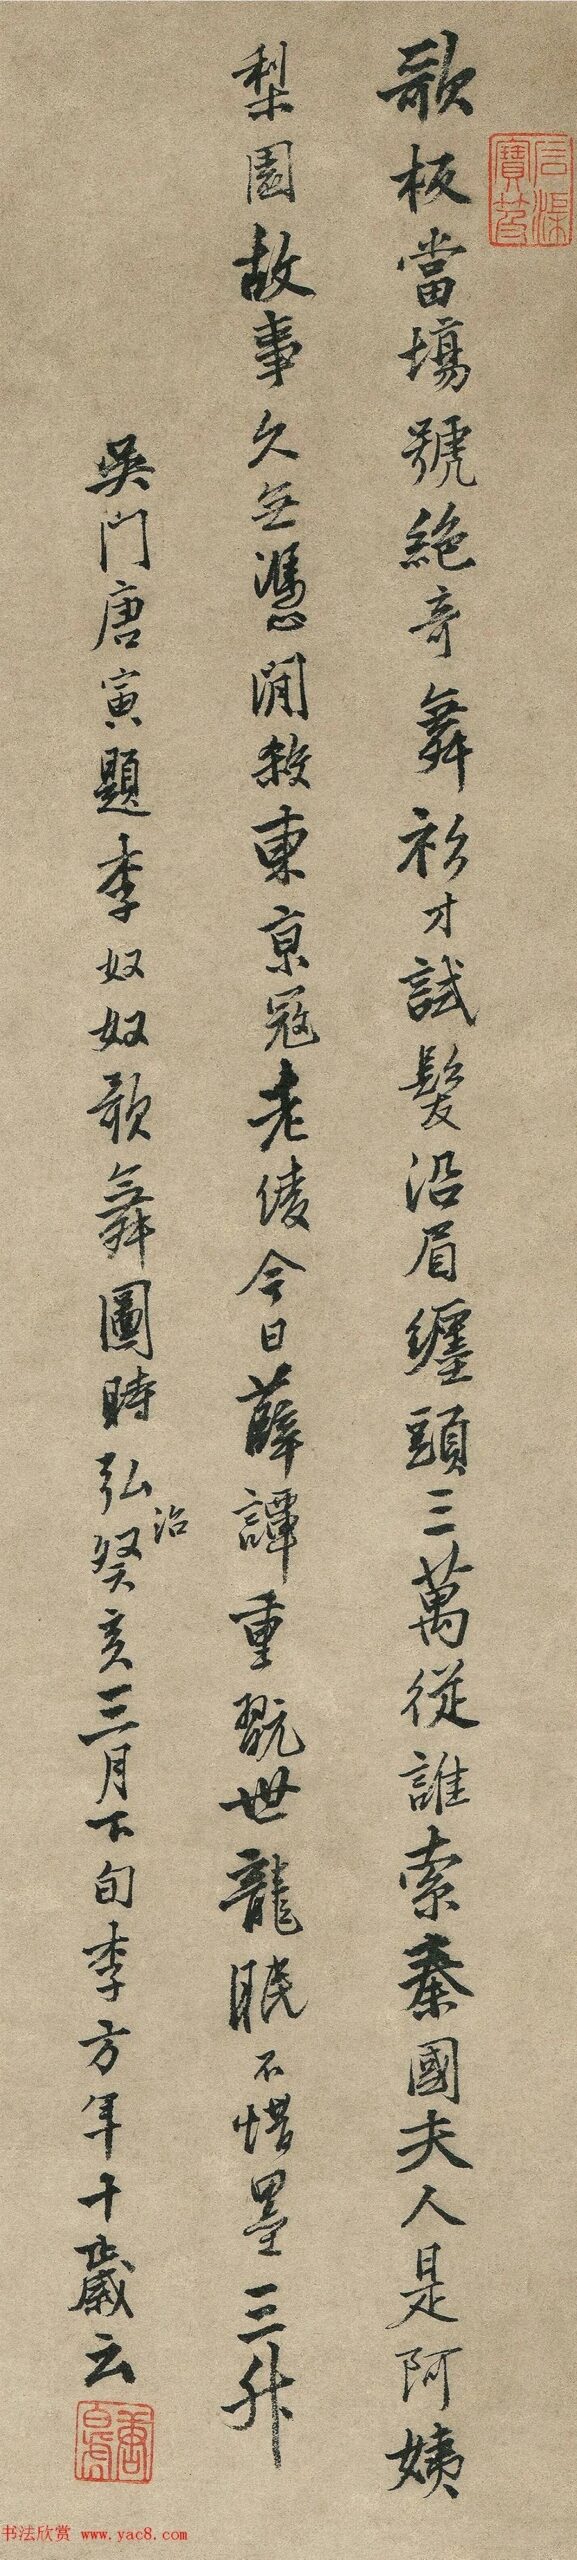 歌板當場號絶奇舞衫才試髮沿眉纏頭三萬從誰索秦國夫人是阿姨
梨園故事久無憑閒殺東京冠老倰今日薛譚重翫世龍眠不惜墨三升
吳門唐寅題李奴奴歌舞圖時弘治癸亥三月下旬李方年十歲云
书法欣赏 www.yac8.com